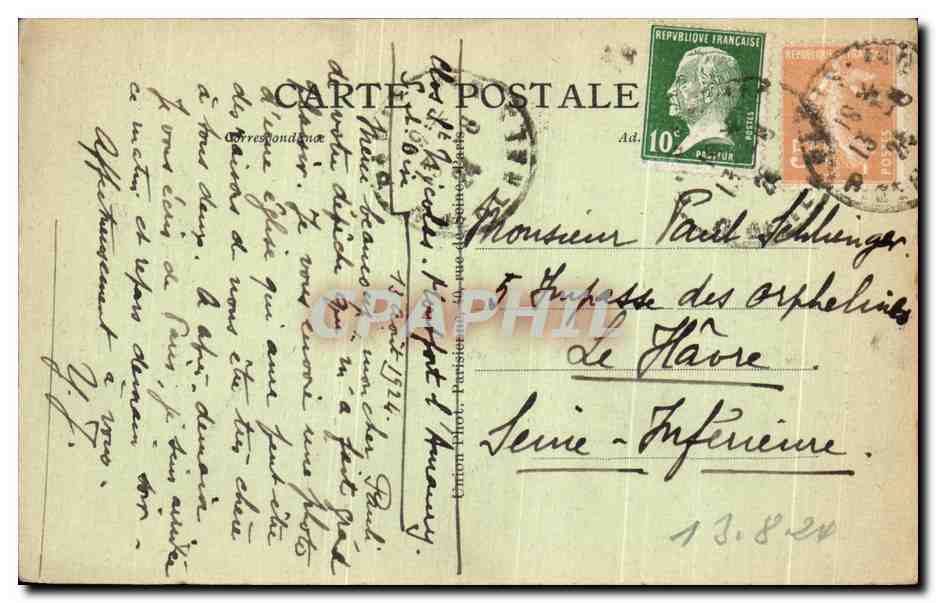 CARTE POSTALE
Correspondance
Ad.
REPUBLIQUE FRANÇAISE
10c
POSTES
PASTEUR
REPUBLIQUE FRANÇAISE
POSTES
Clos St Nicolas. Montfort l'Amaury.
S. et Oise
13 août 1924.
Merci beaucoup, mon cher Paul
de votre dépêche qui m'a fait grand
plaisir. Je vous envoie une photo
d'une église qui aura peut-être
des raisons de nous être très chère
à tous deux. A après-demain
Je vous écris de Paris, je suis arrivée
ce matin et repars demain soir.
Affectueusement à vous.
Y. J.
Union Phot. Parisienne, 10, rue de Seine, Paris
Monsieur Paul Schlienger.
5 Impasse des orphelines
Le Hâvre.
Seine-Inférieure.
13.8.24
CPAPHIL